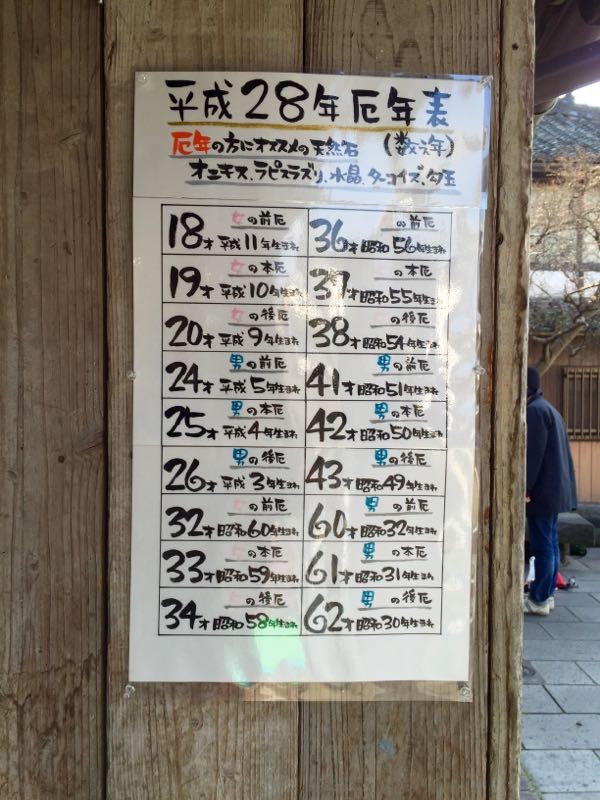 平成28年厄年表
厄年の方にオススメの天然石 (数え年)
オニキス、ラピスラズリ、水晶、ターコイズ、勾玉
女の前厄
18才 平成11年生まれ
女の本厄
19才 平成10年生まれ
女の後厄
20才 平成9年生まれ
男の前厄
24才 平成5年生まれ
男の本厄
25才 平成4年生まれ
男の後厄
26才 平成3年生まれ
女の前厄
32才 昭和60年生まれ
の本厄
33才 昭和59年生まれ
の後厄
34才 昭和58年生まれ
の前厄
36才 昭和56年生まれ
の本厄
37才 昭和55年生まれ
の後厄
38才 昭和54年生まれ
男の前厄
41才 昭和51年生まれ
男の本厄
42才 昭和50年生まれ
男の後厄
43才 昭和49年生まれ
男の前厄
60才 昭和32年生まれ
男の本厄
61才 昭和31年生まれ
男の後厄
62才 昭和30年生まれ